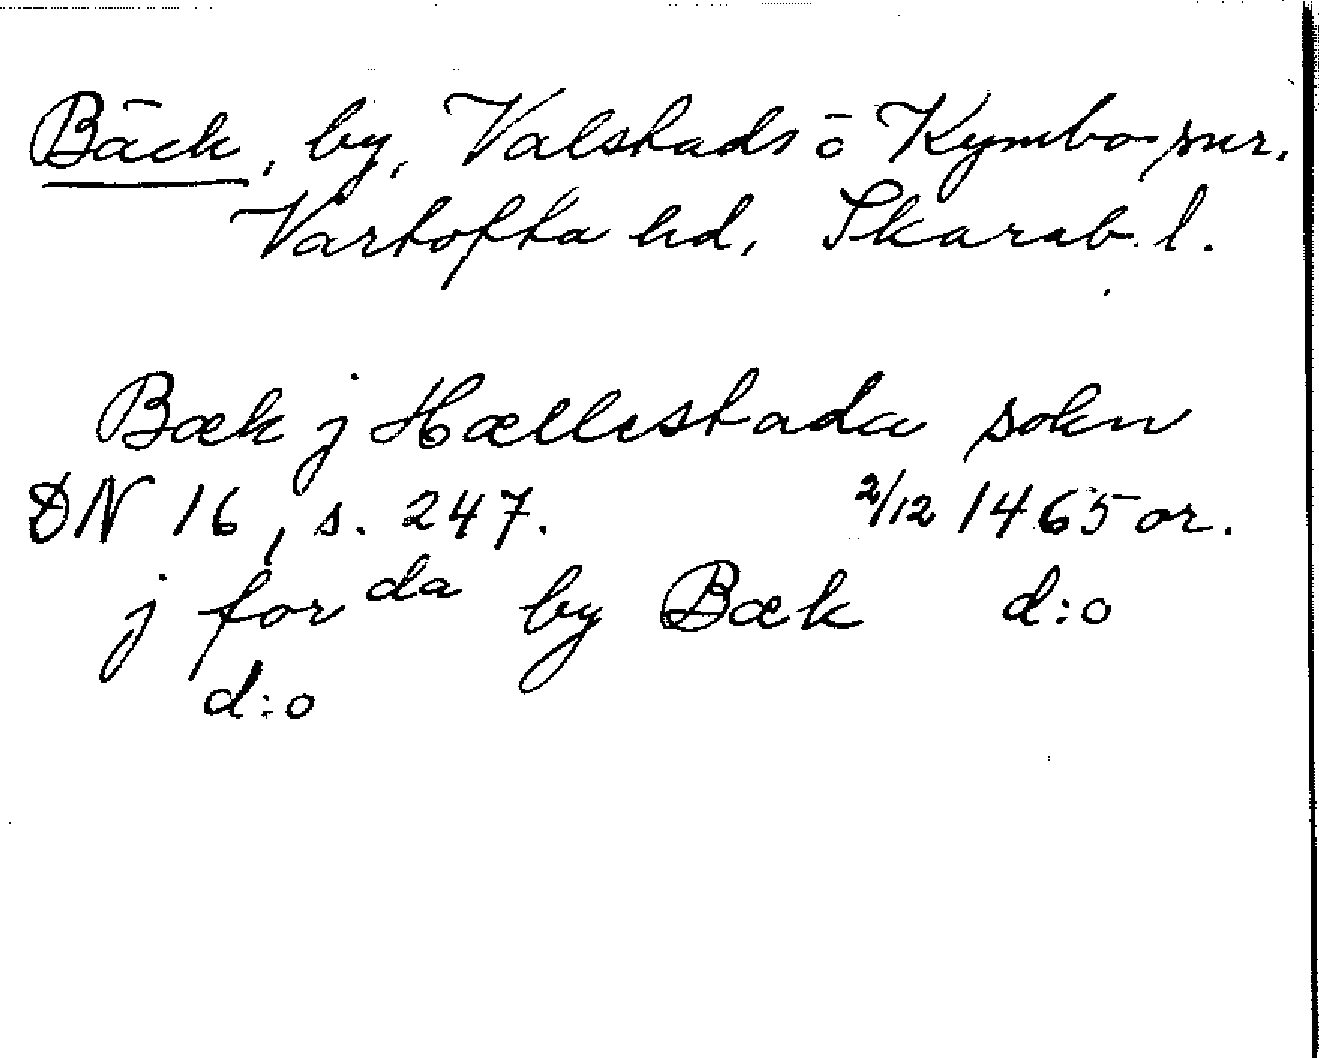 Bäck, by, Valstads ō Kymbo snr.
Vartofta hd, Skarab. l.
Bæk j Hællestada sokn
DN 16, s. 247. 2/12 1465 or.
j for da by Bæk d:o
d:o